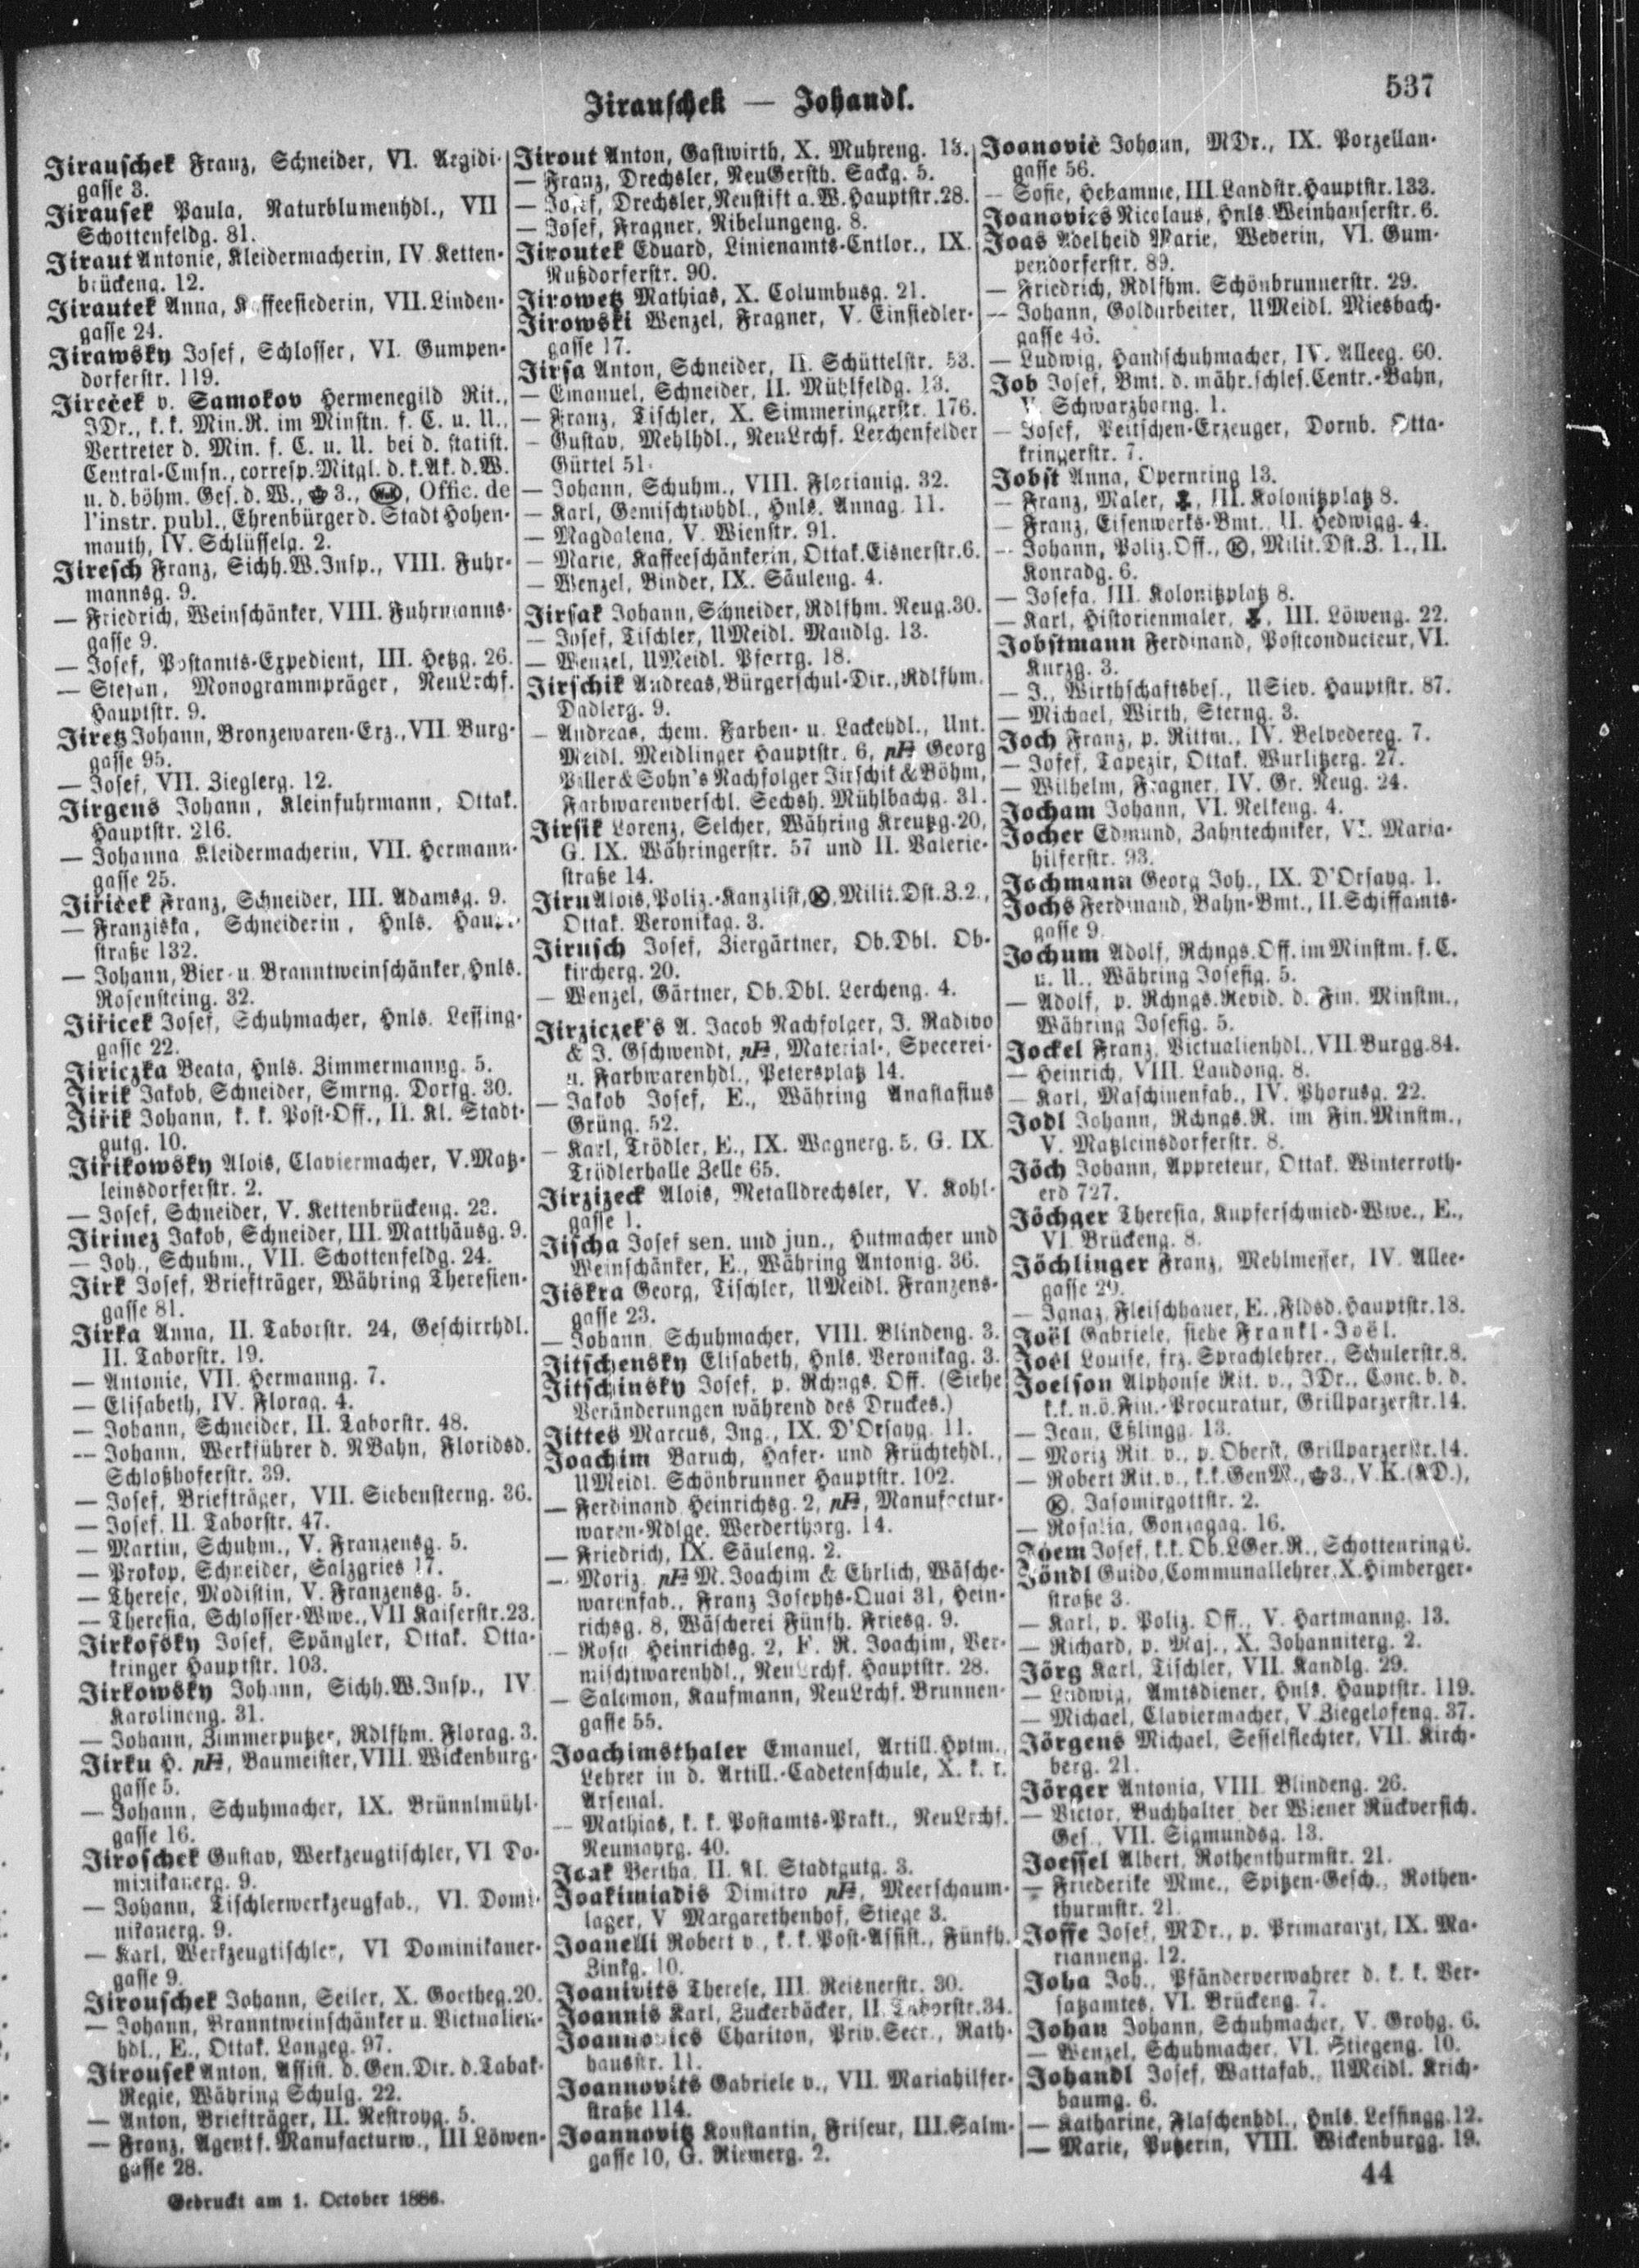 Jirauschek — Johandl.
537
Jirauschek Franz, Schneider, VI. Aegidi-
gasse 3.
Jirausek Paula, Naturblumenhdl., VII
Schottenfeldg. 81.
Jiraut Antonie, Kleidermacherin, IV. Ketten-
brückeng. 12.
Jirautek Anna, Kaffeesiederin, VII. Linden-
gasse 24.
Jirawsky Josef, Schlosser, VI. Gumpen-
dorferstr. 119.
Jireček v. Samokov Hermenegild Rit.,
JDr., k. k. Min.R. im Minstn. f. C. u. U.,
Vertreter d. Min. f. C. u. U. bei d. statist.
Central-Cmsn., corresp. Mitgl. d. k. Ak. d. W.
u. d. böhm. Ges. d. W., 3., Offic. de
l'instr. publ., Ehrenbürger d. Stadt Hohen-
mauth, IV. Schlüsselg. 2.
Jiresch Franz, Sichh.W.Insp., VIII. Fuhr-
mannsg. 9.
— Friedrich, Weinschänker, VIII. Fuhrmanns-
gasse 9.
— Josef, Postamts-Expedient, III. Hetzg. 26.
— Stefan, Monogrammpräger, NeuLrchf.
Hauptstr. 9.
Jiretz Johann, Bronzewaren-Erz., VII. Burg-
gasse 95.
— Josef, VII. Zieglerg. 12.
Jirgens Johann, Kleinfuhrmann, Ottak.
Hauptstr. 216.
— Johanna Kleidermacherin, VII. Hermann-
gasse 25.
Jiřiček Franz, Schneider, III. Adamsg. 9.
— Franziska, Schneiderin, Hnls. Haupt-
straße 132.
— Johann, Bier- u. Branntweinschänker, Hnls.
Rosensteing. 32.
Jiřicek Josef, Schuhmacher, Hnls. Lessing-
gasse 22.
Jiriczka Beata, Hnls. Zimmermanng. 5.
Jirik Jakob, Schneider, Smrng. Dorfg. 30.
Jiřik Johann, k. k. Post-Off., II. Kl. Stadt-
gutg. 10.
Jiřikowsky Alois, Claviermacher, V. Matz-
leinsdorferstr. 2.
— Josef, Schneider, V. Kettenbrückeng. 23.
Jirinez Jakob, Schneider, III. Matthäusg. 9.
— Joh., Schuhm., VII. Schottenfeldg. 24.
Jirk Josef, Briefträger, Währing Theresien-
gasse 81.
Jirka Anna, II. Taborstr. 24, Geschirrhdl.
II. Taborstr. 19.
— Antonie, VII. Hermanng. 7.
— Elisabeth, IV. Florag. 4.
— Johann, Schneider, II. Taborstr. 48.
— Johann, Werkführer d. NBahn, Floridsd.
Schloßhoferstr. 39.
— Josef, Briefträger, VII. Siebensterng. 36.
— Josef, II. Taborstr. 47.
— Martin, Schuhm., V. Franzensg. 5.
— Prokop, Schneider, Salzgries 17.
— Therese, Modistin, V. Franzensg. 5.
— Theresia, Schlosser-Wwe., VII Kaiserstr. 23.
Jirkofsky Josef, Spängler, Ottak. Otta-
kringer Hauptstr. 103.
Jirkowsky Johann, Sichh.W.Insp., IV
Karolineng. 31.
— Johann, Zimmerputzer, Rdlfhm. Florag. 3.
Jirku H. pH, Baumeister, VIII. Wickenburg-
gasse 5.
— Johann, Schuhmacher, IX. Brünnlmühl-
gasse 16.
Jiroschek Gustav, Werkzeugtischler, VI Do-
minikanerg. 9.
— Johann, Tischlerwerkzeugfab., VI. Domi-
nikanerg. 9.
— Karl, Werkzeugtischler, VI Dominikaner-
gasse 9.
Jirouschek Johann, Seiler, X. Goetheg. 20.
— Johann, Branntweinschänker u. Victualien-
hdl., E., Ottak. Langeg. 97.
Jirousek Anton, Assist. d. Gen. Dir. d. Tabak-
Regie, Währing Schulg. 22.
— Anton, Briefträger, II. Nestroyg. 5.
— Franz, Agent f. Manufacturw., III Löwen-
gasse 28.
Gedruckt am 1. October 1886.
Jirout Anton, Gastwirth, X. Muhreng. 13.
— Franz, Drechsler, NeuGersth. Sackg. 5.
— Josef, Drechsler, Neustift a. W. Hauptstr. 28.
— Josef, Fragner, Nibelungeng. 8.
Jiroutek Eduard, Linienamts-Cntlor., IX.
Nußdorferstr. 90.
Jirowetz Mathias, X. Columbusg. 21.
Jirowski Wenzel, Fragner, V. Einsiedler-
gasse 17.
Jirsa Anton, Schneider, II. Schüttelstr. 53.
— Emanuel, Schneider, II. Mühlfeldg. 13.
— Franz, Tischler, X. Simmeringerstr. 176.
— Gustav, Mehlhdl., NeuLrchf. Lerchenfelder
Gürtel 51.
— Johann, Schuhm., VIII. Florianig. 32.
— Karl, Gemischtwhdl., Hnls. Annag. 11.
— Magdalena, V. Wienstr. 91.
— Marie, Kaffeeschänkerin, Ottak. Eisnerstr. 6.
— Wenzel, Binder, IX. Säuleng. 4.
Jirsak Johann, Schneider, Rdlfhm. Neug. 30.
— Josef, Tischler, UMeidl. Mandlg. 13.
— Wenzel, UMeidl. Pfarrg. 18.
Jirschik Andreas, Bürgerschul-Dir., Rdlfhm.
Dadlerg. 9.
— Andreas, chem. Farben- u. Lackehdl., Unt.
Meidl. Meidlinger Hauptstr. 6, pH Georg
Piller & Sohn's Nachfolger Jirschik & Böhm,
Farbwarenverschl. Sechsh. Mühlbachg. 31.
Jirsik Lorenz, Selcher, Währing Kreutzg. 20,
G. IX. Währingerstr. 57 und II. Valerie-
straße 14.
Jiru Alois, Poliz.-Kanzlist, K, Milit. Dst. Z. 2.,
Ottak. Veronikag. 3.
Jirusch Josef, Ziergärtner, Ob.Dbl. Ob-
kircherg. 20.
— Wenzel, Gärtner, Ob.Dbl. Lercheng. 4.
Jirziczek's A. Jacob Nachfolger, J. Radivo
& J. Gschwendt, pH, Material-, Specerei-
u. Farbwarenhdl., Petersplatz 14.
— Jakob Josef, E., Währing Anastasius
Grüng. 52.
— Karl, Trödler, E., IX. Wagnerg. 5, G. IX.
Trödlerhalle Zelle 65.
Jirzizeck Alois, Metalldrechsler, V. Kohl-
gasse 1.
Jischa Josef sen. und jun., Hutmacher und
Weinschänker, E., Währing Antonig. 36.
Jiskra Georg, Tischler, UMeidl. Franzens-
gasse 23.
— Johann Schuhmacher, VIII. Blindeng. 3.
Jitschensky Elisabeth, Hnls. Veronikag. 3.
Jitschinsky Josef, p. Rchngs. Off. (Siehe
Veränderungen während des Druckes.)
Jittes Marcus, Ing., IX. D'Orsayg. 11.
Joachim Baruch, Hafer- und Früchtehdl.,
UMeidl. Schönbrunner Hauptstr. 102.
— Ferdinand Heinrichsg. 2, pH, Manufactur-
waren-Ndlge. Werderthorg. 14.
— Friedrich, IX. Säuleng. 2.
— Moriz, pH M. Joachim & Ehrlich, Wäsche-
warenfab., Franz Josephs-Quai 31, Hein-
richsg. 8, Wäscherei Fünfh. Friesg. 9.
— Rosa Heinrichsg. 2, F. R. Joachim, Ver-
mischtwarenhdl., NeuLrchf. Hauptstr. 28.
— Salomon, Kaufmann, NeuLrchf. Brunnen-
gasse 55.
Joachimsthaler Emanuel, Artill. Hptm.,
Lehrer in d. Artill.-Cadetenschule, X. k. k.
Arsenal.
— Mathias, k. k. Postamts-Prakt., NeuLrchf.
Neumayrg. 40.
Joak Bertha, II. Kl. Stadtgutg. 3.
Joakimiadis Dimitro pH, Meerschaum-
lager, V Margarethenhof, Stiege 3.
Joanelli Robert v., k. k. Post-Assist., Fünfh.
Zinkg. 10.
Joanivits Therese, III. Reisnerstr. 30.
Joannis Karl, Zuckerbäcker, II. Taborstr. 34.
Joannovics Chariton, Priv.Secr., Rath-
hausstr. 11.
Joannovits Gabriele v., VII. Mariahilfer-
straße 114.
Joannovitz Konstantin, Friseur, III. Salm-
gasse 10, G. Riemerg. 2.
Joanovič Johann, MDr., IX. Porzellan-
gasse 56.
— Sofie, Hebamme, III. Landstr. Hauptstr. 133.
Joanovics Nicolaus, Hnls. Weinhauserstr. 6.
Joas Adelheid Marie, Weberin, VI. Gum-
pendorferstr. 89.
— Friedrich, Rdlfhm. Schönbrunnerstr. 29.
— Johann, Goldarbeiter, UMeidl. Miesbach-
gasse 46.
— Ludwig, Handschuhmacher, IV. Alleeg. 60.
Job Josef, Bmt. d. mähr. schles. Centr.-Bahn,
V. Schwarzhorng. 1.
— Josef, Peitschen-Erzeuger, Dornb. Otta-
kringerstr. 7.
Jobst Anna, Opernring 13.
— Franz, Maler, III. Kolonitzplatz 8.
— Franz, Eisenwerks-Bmt., II. Hedwigg. 4.
— Johann, Poliz. Off., K, Milit. Dst. Z. 1., II.
Konradg. 6.
— Josefa, III. Kolonitzplatz 8.
— Karl, Historienmaler, III. Löweng. 22.
Jobstmann Ferdinand, Postconducteur, VI.
Kurzg. 3.
— J., Wirthschaftsbes., USiev. Hauptstr. 87.
— Michael, Wirth, Sterng. 3.
Joch Franz, p. Rittm., IV. Belvedereg. 7.
— Josef, Tapezir, Ottak. Wurlitzerg. 27.
— Wilhelm, Fragner, IV. Gr. Neug. 24.
Jocham Johann, VI. Nelkeng. 4.
Jocher Edmund, Zahntechniker, VI. Maria-
hilferstr. 93.
Jochmann Georg Joh., IX. D'Orsayg. 1.
Jochs Ferdinand, Bahn-Bmt., II. Schiffamts-
gasse 9.
Jochum Adolf, Rchngs. Off. im Minstm. f. C.
u. U., Währing Josefig. 5.
— Adolf, p. Rchngs. Revid. d. Fin. Minstm.,
Währing Josefig. 5.
Jockel Franz, Victualienhdl., VII. Burgg. 84.
— Heinrich, VIII. Laudong. 8.
— Karl, Maschinenfab., IV. Phorusg. 22.
Jodl Johann, Rchngs.R. im Fin. Minstm.,
V. Matzleinsdorferstr. 8.
Jöch Johann, Appreteur, Ottak. Winterroth-
erd 727.
Jöchger Theresia, Kupferschmied-Wwe., E.,
VI. Brückeng. 8.
Jöchlinger Franz, Mehlmesser, IV. Allee-
gasse 29.
— Ignaz, Fleischhauer, E., Fldsd. Hauptstr. 18.
Joël Gabriele, siehe Frankl-Joël.
Joël Louise, frz. Sprachlehrer., Schulerstr. 8.
Joelson Alphonse Rit. v., JDr., Conc. b. d.
k. k. n. ö. Fin.-Procuratur, Grillparzerstr. 14.
— Jean, Eßlingg. 13.
— Moriz Rit. v., p. Oberst, Grillparzerstr. 14.
— Robert Rit. v., k. k. GenM., 3., V.K. (KD.),
K, Jasomirgottstr. 2.
— Rosalia, Gonzagag. 16.
Joem Josef, k. k. Ob.LGer.R., Schottenring 6.
Jöndl Guido, Communallehrer, X. Himberger-
straße 3.
— Karl, p. Poliz. Off., V. Hartmanng. 13.
— Richard, p. Maj., X. Johanniterg. 2.
Jörg Karl, Tischler, VII. Kandlg. 29.
— Ludwig, Amtsdiener, Hnls. Hauptstr. 119.
— Michael, Claviermacher, V. Ziegelofeng. 37.
Jörgens Michael, Sesselflechter, VII. Kirch-
berg. 21.
Jörger Antonia, VIII. Blindeng. 26.
— Victor, Buchhalter der Wiener Rückversich.
Ges., VII. Sigmundsg. 13.
Joessel Albert, Rothenthurmstr. 21.
— Friederike Mme., Spitzen-Gesch., Rothen-
thurmstr. 21.
Joffe Josef, MDr., p. Primararzt, IX. Ma-
rianneng. 12.
Joha Joh., Pfänderverwahrer d. k. k. Ver-
satzamtes, VI. Brückeng. 7.
Johan Johann, Schuhmacher, V. Grohg. 6.
— Wenzel, Schuhmacher, VI. Stiegeng. 10.
Johandl Josef, Wattafab., UMeidl. Krich-
baumg. 6.
— Katharine, Flaschenhdl., Hnls. Lessingg. 12.
— Marie, Putzerin, VIII. Wickenburgg. 19.
44